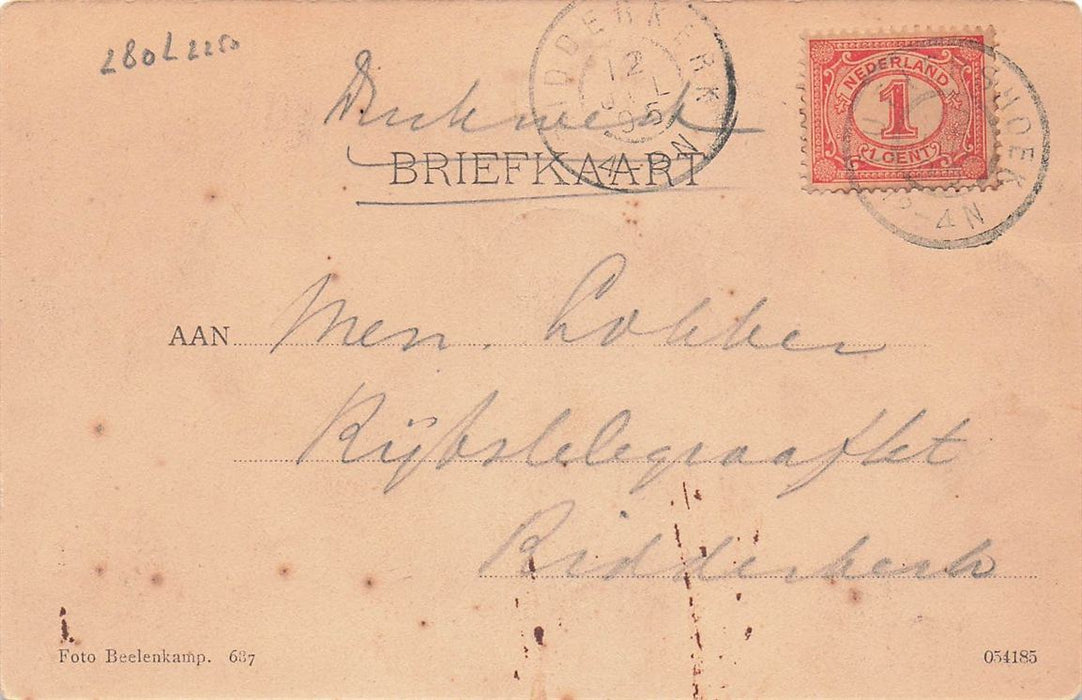 280L2250
Drukwerk
BRIEFKAART
DDERKERK
12
JUL
05
4-
N
NEDERLAND
1
1 CENT
SHOEK
12-4N
AAN Men. Lobber
Rijkstelegraafkt
Ridderkerk
Foto Beelenkamp. 687
054185